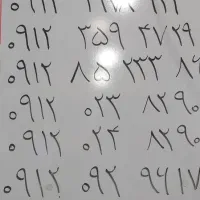 ۰۹۱۲ ۳۵۹ ۴۷۲۹
۰۹۱۲ ۸۵ ۲۳۳ ۸۶
۰۹۱۲ ۰۲۳ ۸۲۹۰
۰۹۱۲ ۰۲۴ ۸۲۹۰
۰۹۱۲ ۰۹۲ ۹۶۱۷